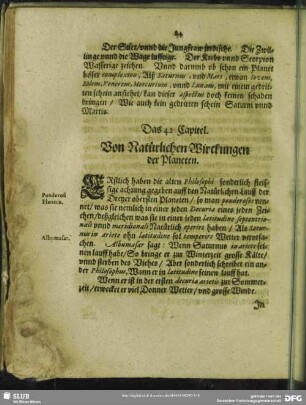 84
Der Stier / vnnd die Jungfraw jrrdische. Die Zwil-
linge vnnd die Wage lufftige. Der Krebs vnnd Scorpion
Wasserige zeichen. Vnnd darumb ob schon ein Planet
böser complexion, Als Saturnus, vnd Mars, etwan Iovem,
Solem, Venerem, Mercurium, vnnd Lunam, mit einem gedrit-
ten schein ansihet / kan dieser aspectus doch keinen schaden
bringen / Wie auch kein gedritten schein Saturni vnnd
Martis.
Das 42 Capitel.
Von Natürlichen Wirckungen
der Planeten.
ERstlich haben die alten Philosophi sonderlich fleis-
sige achtung gegeben auff den Natürlichen Lauff der
Dreyer obersten Planeten / so man ponderosos nen-
net / was sie nemlich in einer jeden Decuria eines jeden Zei-
chen / deßgleichen was sie in einer jeden Latitudine septentrio-
nali vnnd meridionali Natürlich operirt haben / Als Satur-
nus in Ariete ohn Latitudine sol temperat Wetter verursa-
chen. Albumasar sagt: Wenn Saturnus in ariete sei-
nen lauff habe / So bringe er zur Winterzeit grosse Kälte /
vnnd sterben des Viehes / Aber sonderlich schreibet ein an-
der Philosophus, Wann er in Latitudine seinen lauff hat.
Wenn er ist in der ersten decuria arietis zur Sommer-
zeit / erwecket er viel Donner Wetter / vnd grosse Winde.
In
Ponderosi
Planetæ.
Albumasar.
SLUB
DFG